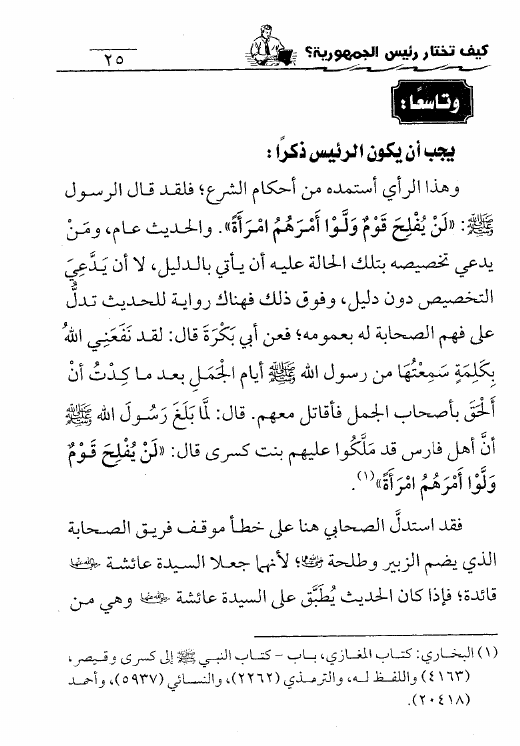 كيف تختار رئيس الجمهورية؟
٢٥
وتاسعًا:
يجب أن يكون الرئيس ذكرًا:
وهذا الرأي أستمده من أحكام الشرع؛ فلقد قال الرسول
ﷺ: «لَنْ يُفْلِحَ قَوْمٌ وَلَّوْا أَمْرَهُمُ امْرَأَةً». والحديث عام، ومَنْ
يدعي تخصيصه بتلك الحالة عليه أن يأتي بالدليل، لا أن يَدَّعِيَ
التخصيص دون دليل، وفوق ذلك فهناك رواية للحديث تدلُّ
على فهم الصحابة له بعمومه؛ فعن أبي بَكْرَةَ قال: لقد نَفَعَنِي اللهُ
بِكَلِمَةٍ سَمِعْتُهَا من رسول الله ﷺ أيام الْجَمَلِ بعد ما كِدْتُ أَنْ
أَلْحَقَ بأصحاب الجمل فأقاتل معهم. قال: لَمَّا بَلَغَ رَسُولَ الله ﷺ
أنَّ أهل فارس قد مَلَّكُوا عليهم بنت كسرى قال: «لَنْ يُفْلِحَ قَوْمٌ
وَلَّوْا أَمْرَهُمُ امْرَأَةً»(١).
فقد استدلَّ الصحابي هنا على خطأ موقف فريق الصحابة
الذي يضم الزبير وطلحة رضي الله عنهما؛ لأنهما جعلا السيدة عائشة رضي الله عنها
قائدة؛ فإذا كان الحديث يُطَبَّق على السيدة عائشة رضي الله عنها وهي من
(١) البخاري: كتاب المغازي، باب - كتاب النبي ﷺ إلى كسرى وقيصر،
(٤١٦٣) واللفظ له، والترمذي (٢٢٦٢)، والنسائي (٥٩٣٧)، وأحمد
(٢٠٤١٨).